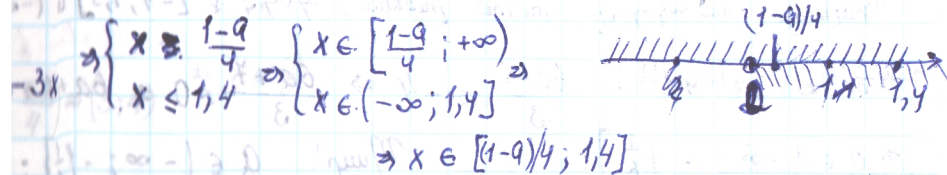 -3x => { x ≥ (1-a)/4 => { x ∈ [(1-a)/4 ; +∞) =>
x ≤ 1,4 { x ∈ (-∞ ; 1,4]
(1-a)/4
1,4
=> x ∈ [(1-a)/4 ; 1,4]